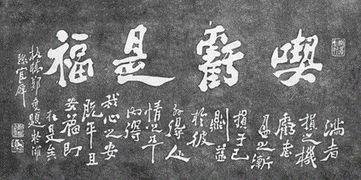 喫虧是福
滿者
損之機
虧者
盈之漸
損于己
則益
於彼
外得人
情之平
內得
我心之安
既平且
安福即
在是矣
板橋鄭燮題於濰
縣官署